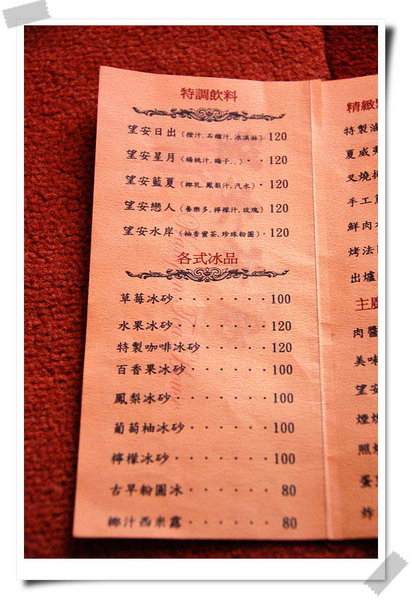 特調飲料
望安日出(橙汁,石榴汁,冰淇淋)120
望安星月(楊桃汁,梅子..)··120
望安藍夏(椰乳,鳳梨汁,汽水)·120
望安戀人(養樂多,檸檬汁,玫瑰)120
望安水岸(柚香蜜茶,珍珠粉圓)·120
各式冰品
草莓冰砂·······100
水果冰砂·······120
特製咖啡冰砂·····120
百香果冰砂······100
鳳梨冰砂·······100
葡萄柚冰砂······100
檸檬冰砂·······100
古早粉圓冰······80
椰汁西米露······80
精緻
特製
夏威
叉燒
手工
鮮肉
烤法
出爐
主
肉醬
美味
望安
煙燻
照
蛋
炸